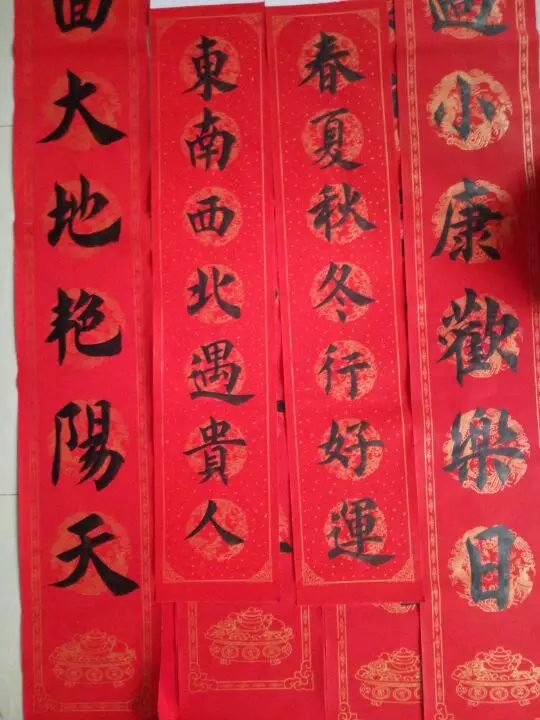 小康歡樂日
春夏秋冬行好運
東南西北遇貴人
大地艳陽天